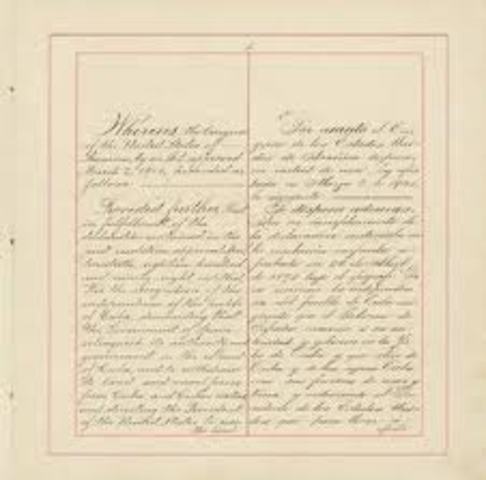 Whereas the Congress
of the United States of
America, by an Act approved
March 2, 1901, provided as
follows:
Provided further, That
in fulfillment of the
declaration contained in the
joint resolution approved
twentieth, eighteen hundred
and ninety-eight, entitled
For the recognition of the
independence of the people
of Cuba, demanding that
the Government of Spain
relinquish its authority and
government in the island
of Cuba, and to withdraw
its land and naval forces
from Cuba and Cuban waters,
and directing the President
of the United States to use
the land
Por cuanto el Con-
greso de los Estados Uni-
dos de América dispuso,
en virtud de una ley apro-
bada en Marzo 2 de 1901,
lo siguiente
Se dispone además,
que en cumplimiento de
la declaración contenida en
la resolución conjunta a-
probada en 20 de Abril
de 1898
independencia
del pueblo de Cuba
que el Gobierno de
España renuncie a su au-
toridad y gobierno en la Is-
la de Cuba, y que retire de
Cuba y de las aguas Cuba-
nas sus fuerzas de mar y
tierra, y ordenando al Pre-
sidente de los Estados Uni-
dos que para llevar a
efecto